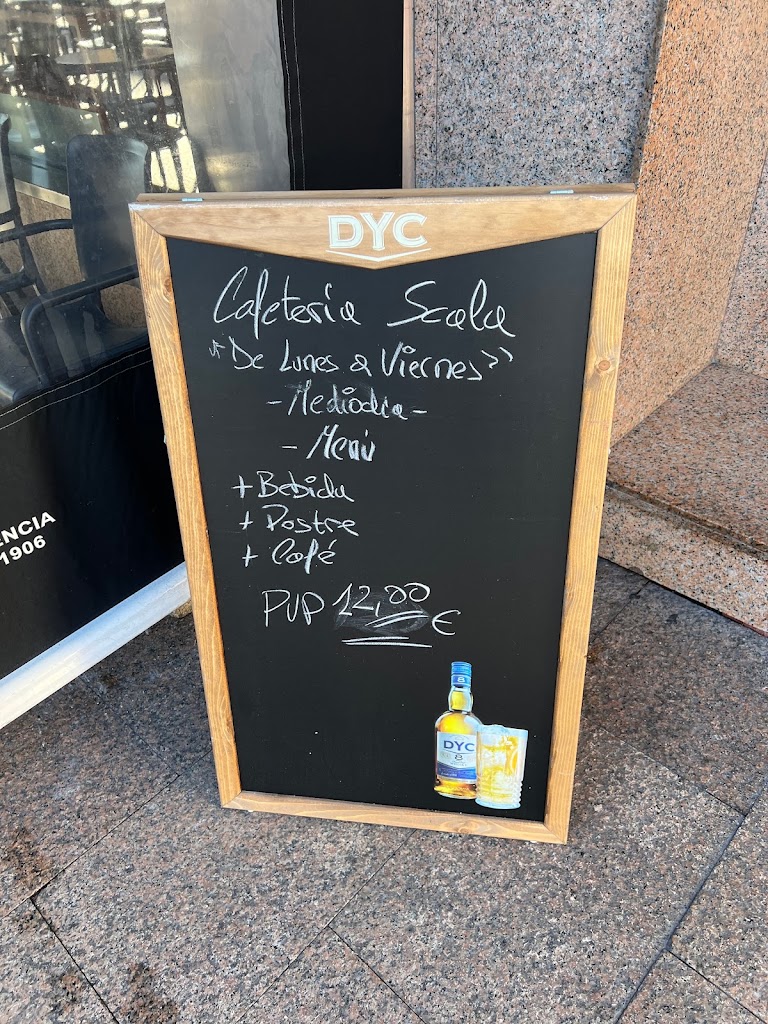 DYC
Cafeteria Scala
"De Lunes a Viernes"
- Mediodia -
- Menú
+ Bebida
+ Postre
+ Café
PVP 12,00 €
ENCIA
1906
DYC
8